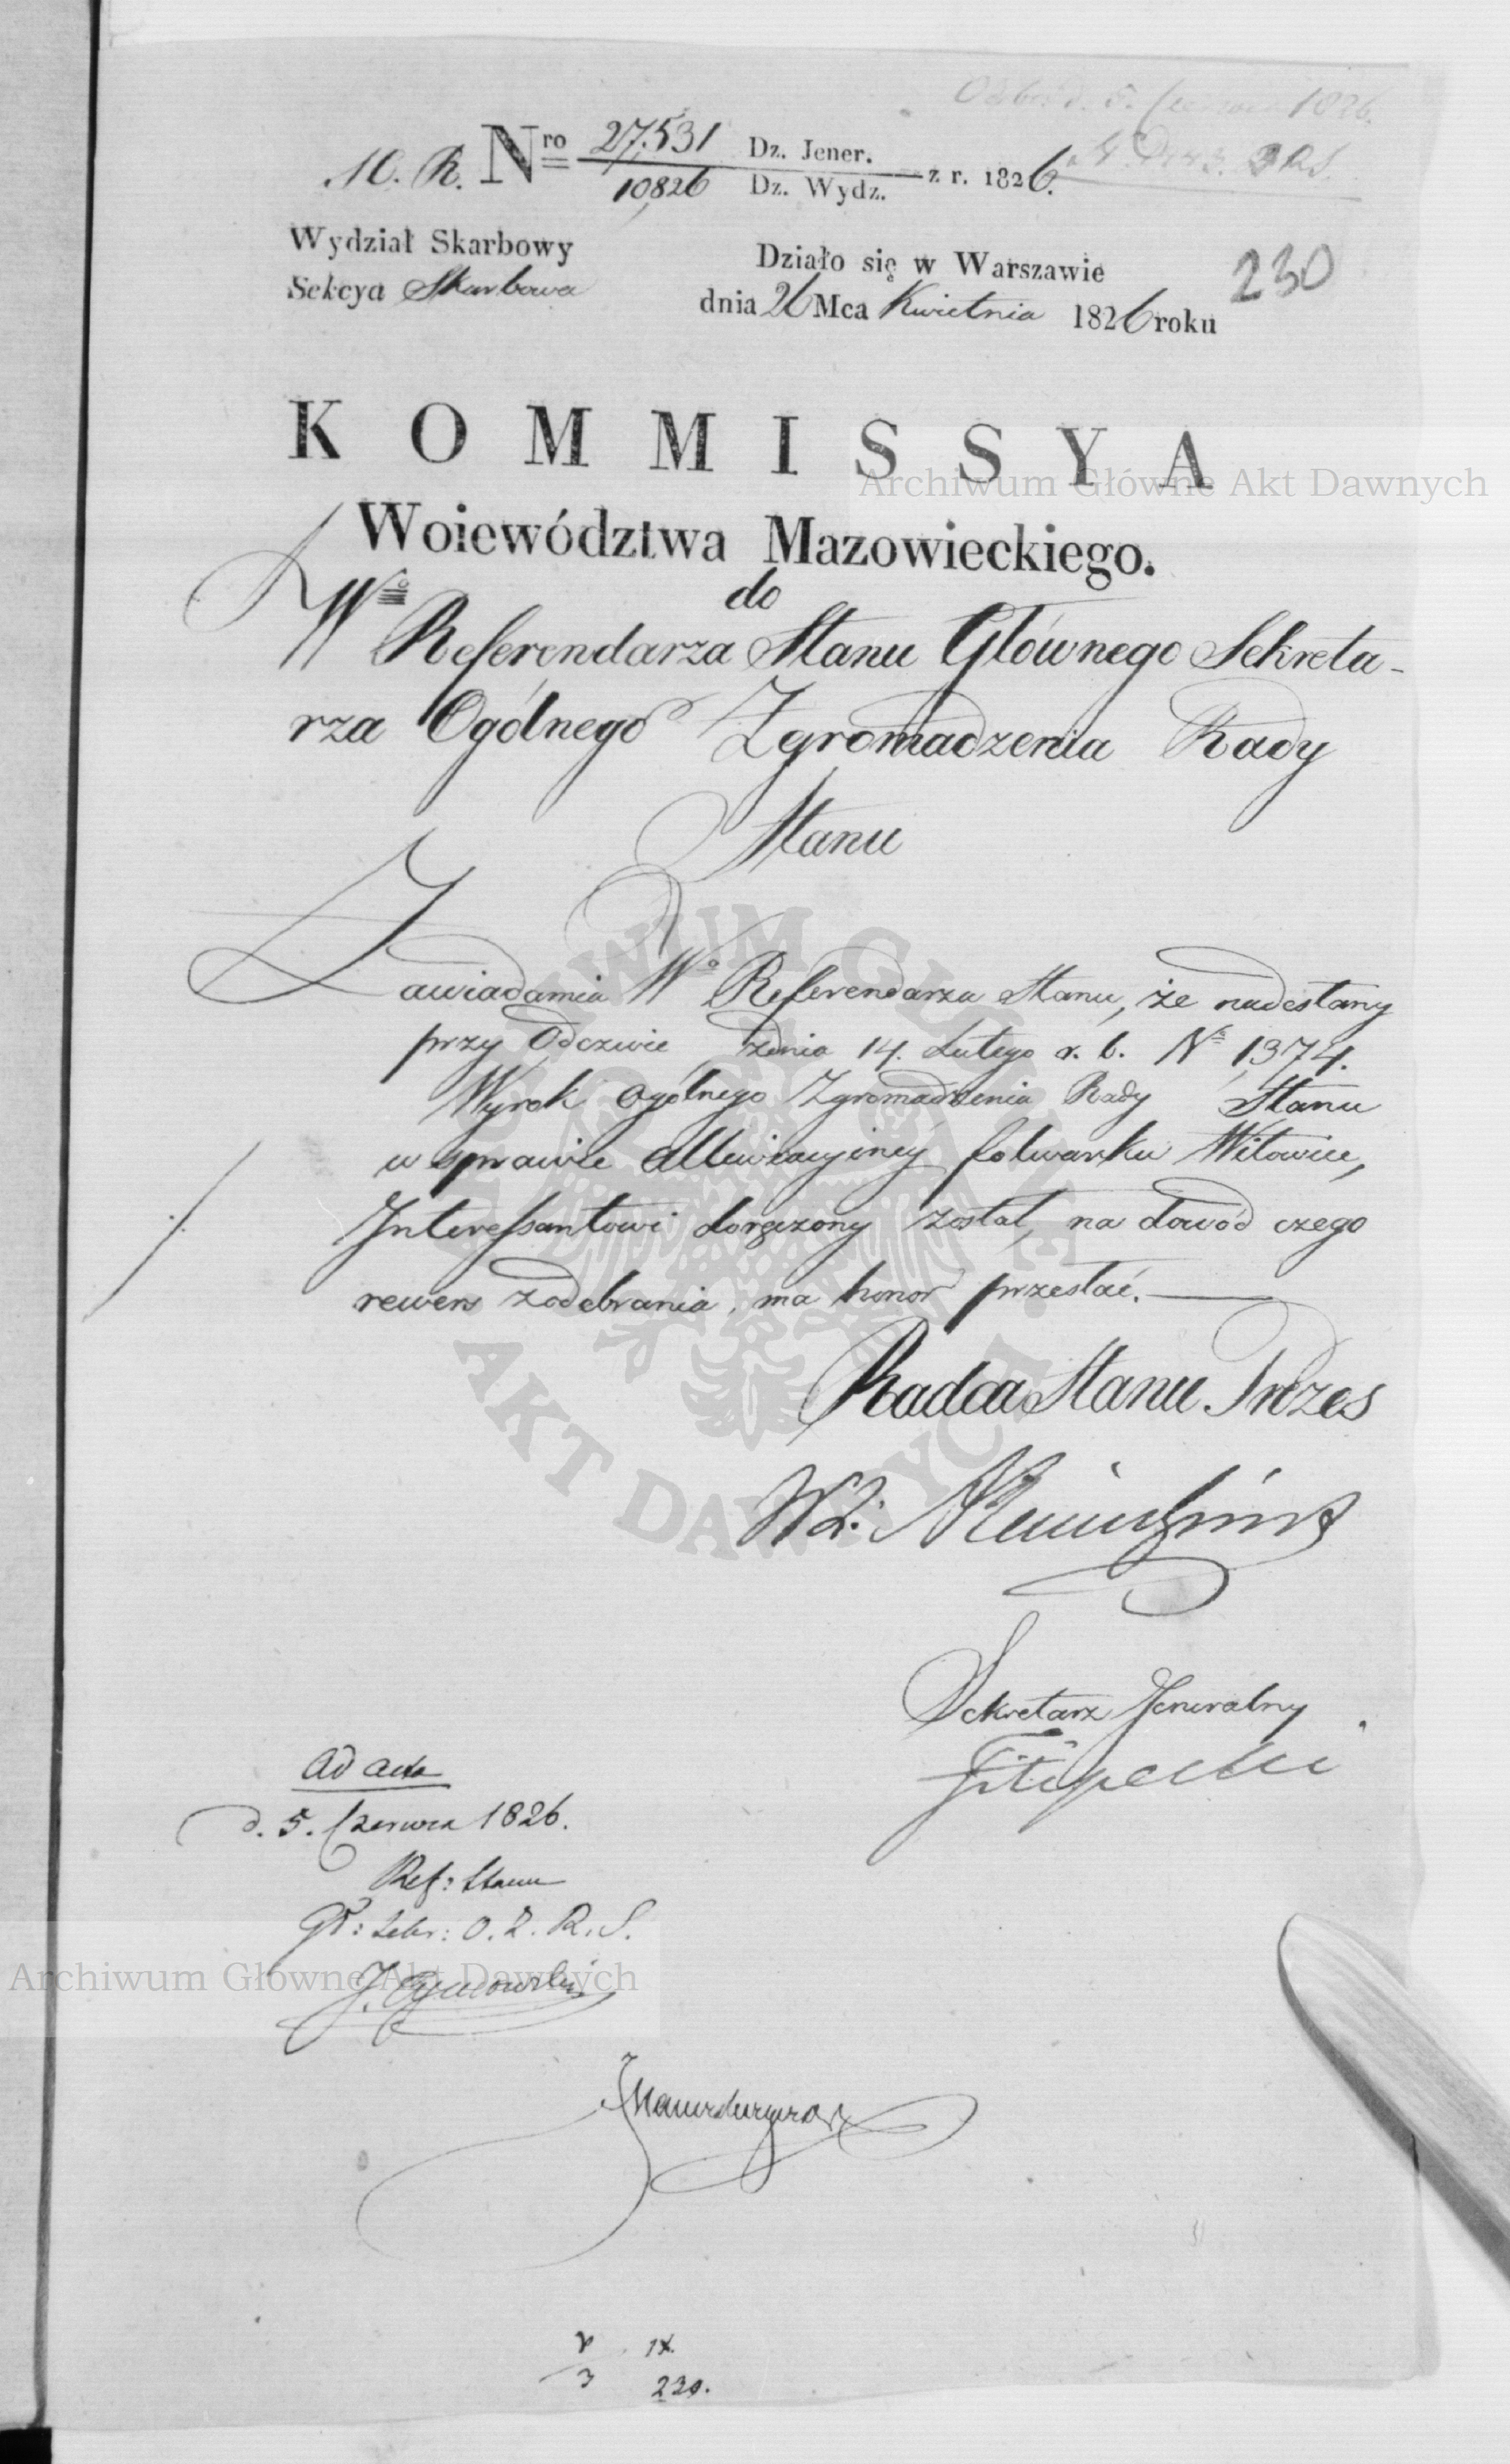 Odebr. d. 5. Czerwca 1826.
M. R. Nro 27,531 Dz. Jener.
10,826 Dz. Wydz. z r. 1826.
Wydział Skarbowy
Sekcya Skarbowa
Działo się w Warszawie
dnia 26 Mca Kwietnia 1826 roku
230
KOMMISSYA
Archiwum Główne Akt Dawnych
Woiewództwa Mazowieckiego.
do
Wo Referendarza Stanu Głównego Sekreta-
rza Ogólnego Zgromadzenia Rady
Stanu
Zawiadamia Wo Referendarza Stanu, że nadesłany
przy Odezwie z dnia 14. Lutego r. b. No 1374.
Wyrok Ogólnego Zgromadzenia Rady Stanu
w sprawie Allewiacyiney folwarku Witowice,
Interessantowi doręczony został, na dowód czego
rewers z odebrania, ma honor przesłać.
Radca Stanu Prezes
Sekretarz Jeneralny
Filipecki
ad acta
d. 5. Czerwca 1826.
Ref: Stanu
Gł: Sekr: O. Z. R. S.
Archiwum Główne Akt Dawnych
J. Tymowski
IX.
230.